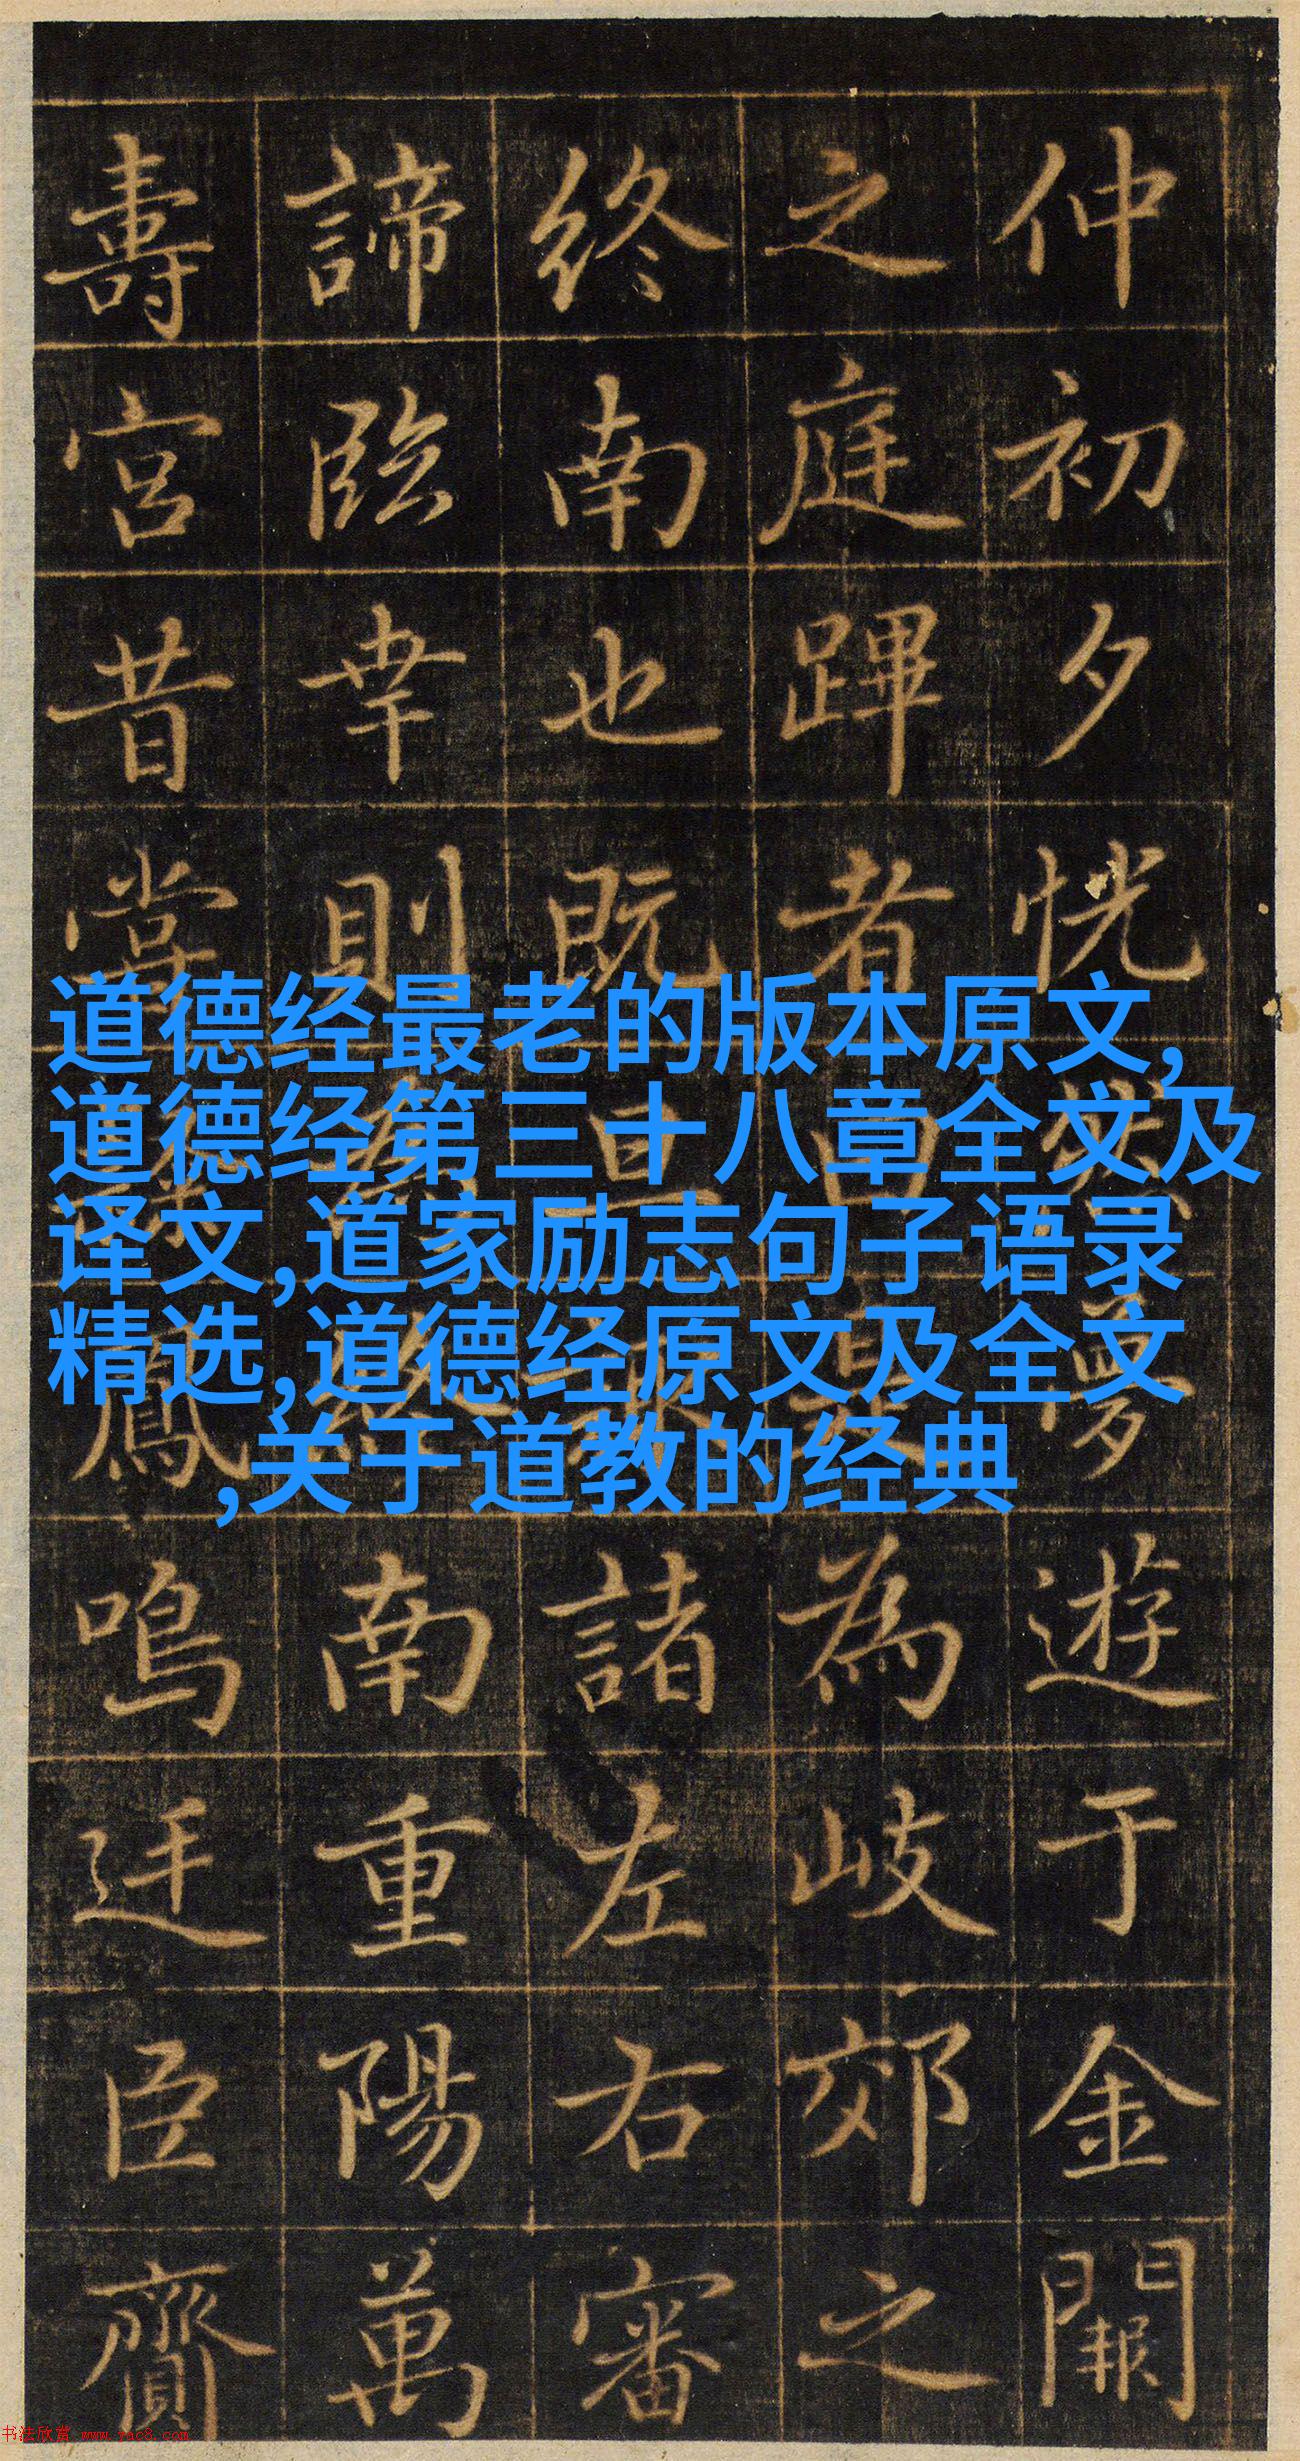 仲初夕恍夢遊于金闕
之庭蹕者曰是為岐郊之
終南也既諸左右審
諦臨幸則南重陽萬
壽宮昔嘗鳳鳴迂臣齎
道德经最老的版本原文,
道德经第三十八章全文及
译文,道家励志句子语录
精选,道德经原文及全文
,关于道教的经典
书法欣赏 www.yac8.com